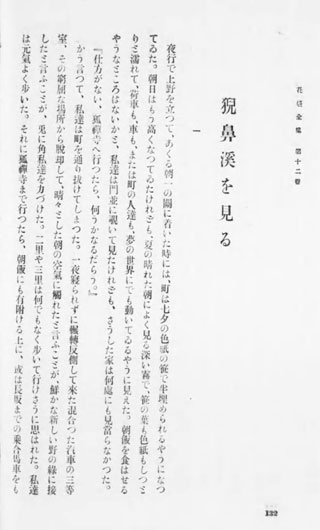 花袋全集 第十二卷
猊鼻溪を見る
一
夜行で上野を立つて、あくる朝一の關に着いた時には、町は七夕の色紙の笹で半埋められるやうになつ
てゐた。朝日はもう高くなつてゐたけれども、夏の晴れた朝によく見る深い霧で、笹の葉も色紙もしつと
りと濡れて、荷車も、車も、または町の人達も、夢の世界にでも動いてゐるやうに見えた。朝飯を食はせる
やうなところはないかと、私達は門並に覗いて見たけれども、さうした家は何處にも見當らなかつた。
『仕方がない、孤禪寺へ行つたら、何うかなるだらう。』
かう言つて、私達は町を通り拔けてしまつた。一夜寢られずに輾轉反側して來た混合つた汽車の三等
室、その窮屈な場所から脫却して、晴々とした朝の空氣に觸れたと言ふことが、鮮かな新しい野の綠に接
したと言ふことが、兎に角私達を力づけた。二里や三里は何でもなく步いて行けさうに思はれた。私達
は元氣よく步いた。それに孤禪寺まで行つたら、朝飯にも有附ける上に、或は長坂までの乘合馬車をも
132